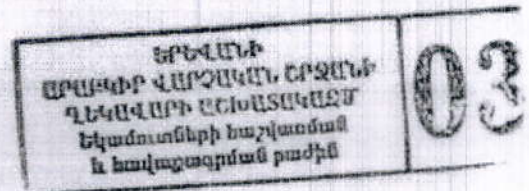 ԵՐԵՎԱՆԻ
ԱՐԱԲԿԻՐ ՎԱՐՉԱԿԱՆ ՇՐՋԱՆԻ
ՂԵԿԱՎԱՐԻ ԱՇԽԱՏԱԿԱԶՄ
Եկամուտների հաշվառման
և հավաքագրման բաժին
03